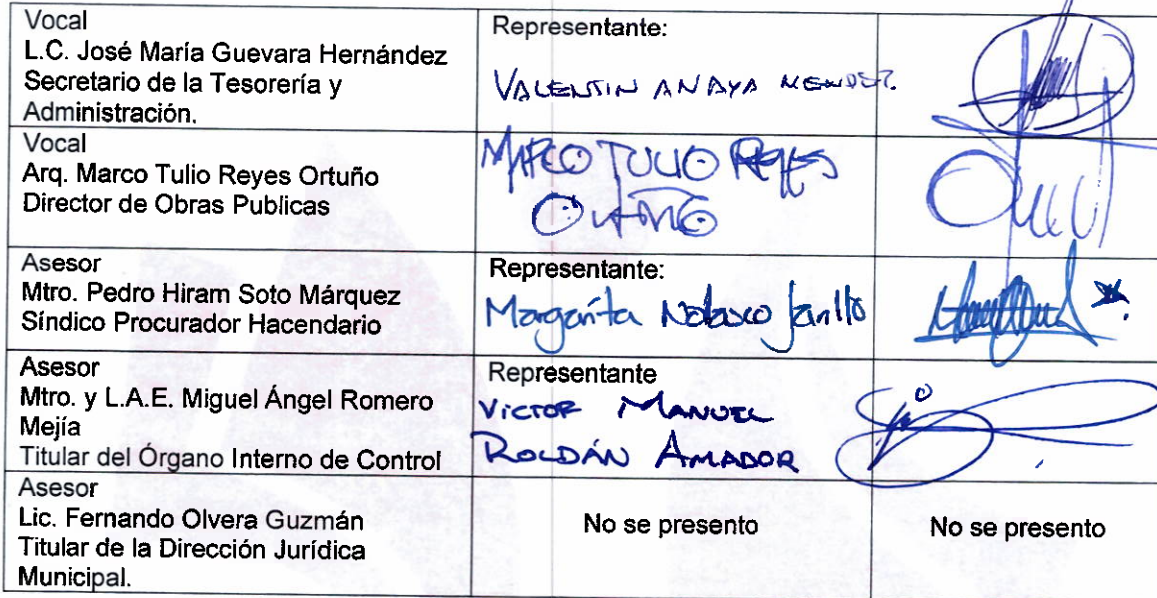 Vocal
L.C. José María Guevara Hernández
Secretario de la Tesorería y
Administración.
Representante:
VALENTIN ANAYA MENDEZ.
Vocal
Arq. Marco Tulio Reyes Ortuño
Director de Obras Publicas
MARCO TULIO REYES
ORTUÑO
Asesor
Mtro. Pedro Hiram Soto Márquez
Síndico Procurador Hacendario
Representante:
Margarita Nolasco Jarillo
Asesor
Mtro. y L.A.E. Miguel Ángel Romero
Mejía
Titular del Órgano Interno de Control
Representante
VICTOR MANUEL
ROLDÁN AMADOR
Asesor
Lic. Fernando Olvera Guzmán
Titular de la Dirección Jurídica
Municipal.
No se presento
No se presento